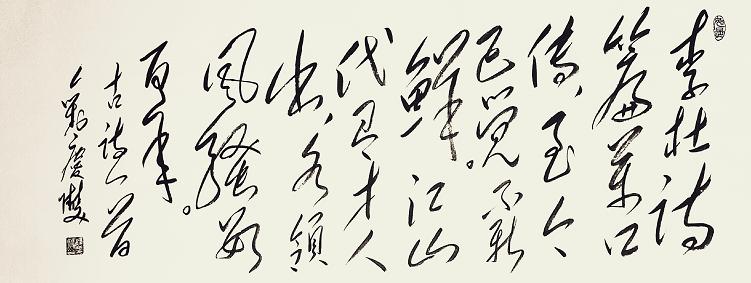 李杜诗
篇万口
传，至今
已觉不新
鲜。江山
代有才人
出，各领
风骚数
百年。
古诗一首
庆双